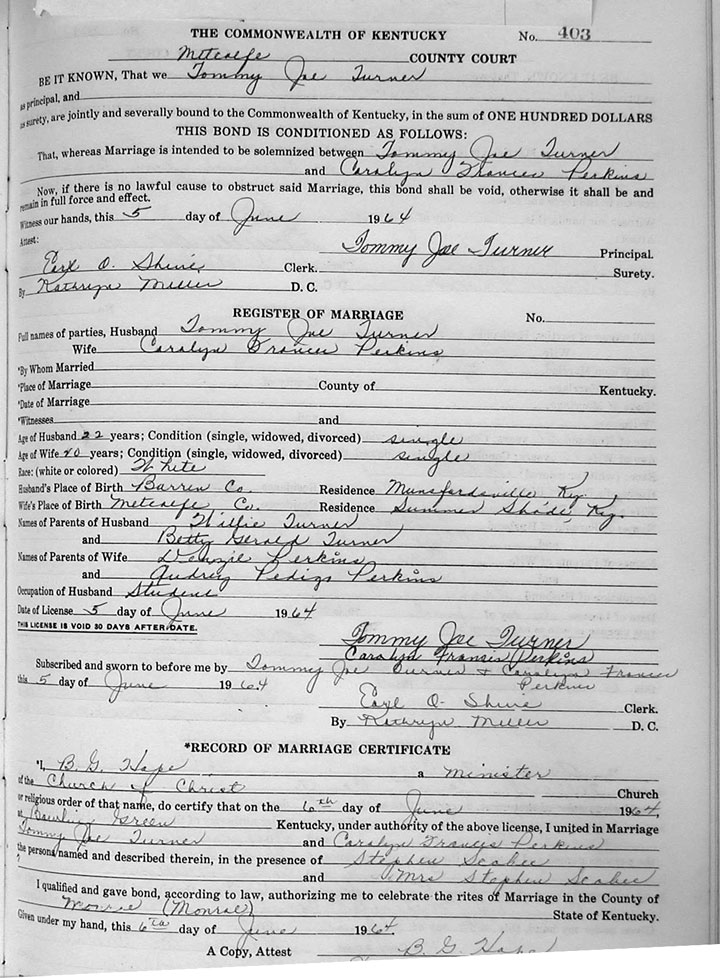 THE COMMONWEALTH OF KENTUCKY No. 403
Metcalfe COUNTY COURT
BE IT KNOWN, That we Tommy Joe Turner
as principal, and
as surety, are jointly and severally bound to the Commonwealth of Kentucky, in the sum of ONE HUNDRED DOLLARS
THIS BOND IS CONDITIONED AS FOLLOWS:
That, whereas Marriage is intended to be solemnized between Tommy Joe Turner
and Carolyn Frances Perkins
Now, if there is no lawful cause to obstruct said Marriage, this bond shall be void, otherwise it shall be and
remain in full force and effect.
Witness our hands, this 5 day of June 1964
Attest: Tommy Joe Turner Principal.
Earl O. Shive Clerk. Surety.
By Kathryn Miller D. C.
REGISTER OF MARRIAGE No.
Full names of parties, Husband Tommy Joe Turner
Wife Carolyn Frances Perkins
*By Whom Married
*Place of Marriage County of Kentucky.
*Date of Marriage
*Witnesses and
Age of Husband 22 years; Condition (single, widowed, divorced) single
Age of Wife 20 years; Condition (single, widowed, divorced) single
Race: (white or colored) White
Husband's Place of Birth Barren Co. Residence Munfordsville, Ky.
Wife's Place of Birth Metcalfe Co. Residence Summer Shade, Ky.
Names of Parents of Husband Willie Turner
and Betty Gerald Turner
Names of Parents of Wife Denzil Perkins
and Audrey Pedigo Perkins
Occupation of Husband Student
Date of License 5 day of June 1964
THIS LICENSE IS VOID 30 DAYS AFTER DATE.
Tommy Joe Turner
Carolyn Francis Perkins
Subscribed and sworn to before me by Tommy Joe Turner & Carolyn Frances
Perkins
this 5 day of June 1964
Earl O. Shive Clerk.
By Kathryn Miller D. C.
*RECORD OF MARRIAGE CERTIFICATE
*I, B. G. Hope a minister
of the Church of Christ Church
or religious order of that name, do certify that on the 6th day of June 1964,
at Bowling Green Kentucky, under authority of the above license, I united in Marriage
Tommy Joe Turner and Carolyn Frances Perkins
the persons named and described therein, in the presence of Stephen
and Mrs Stephen
I qualified and gave bond, according to law, authorizing me to celebrate the rites of Marriage in the County of
Monroe (Monroe) State of Kentucky.
Given under my hand, this 6th day of June 1964.
A Copy, Attest B. G. Hope